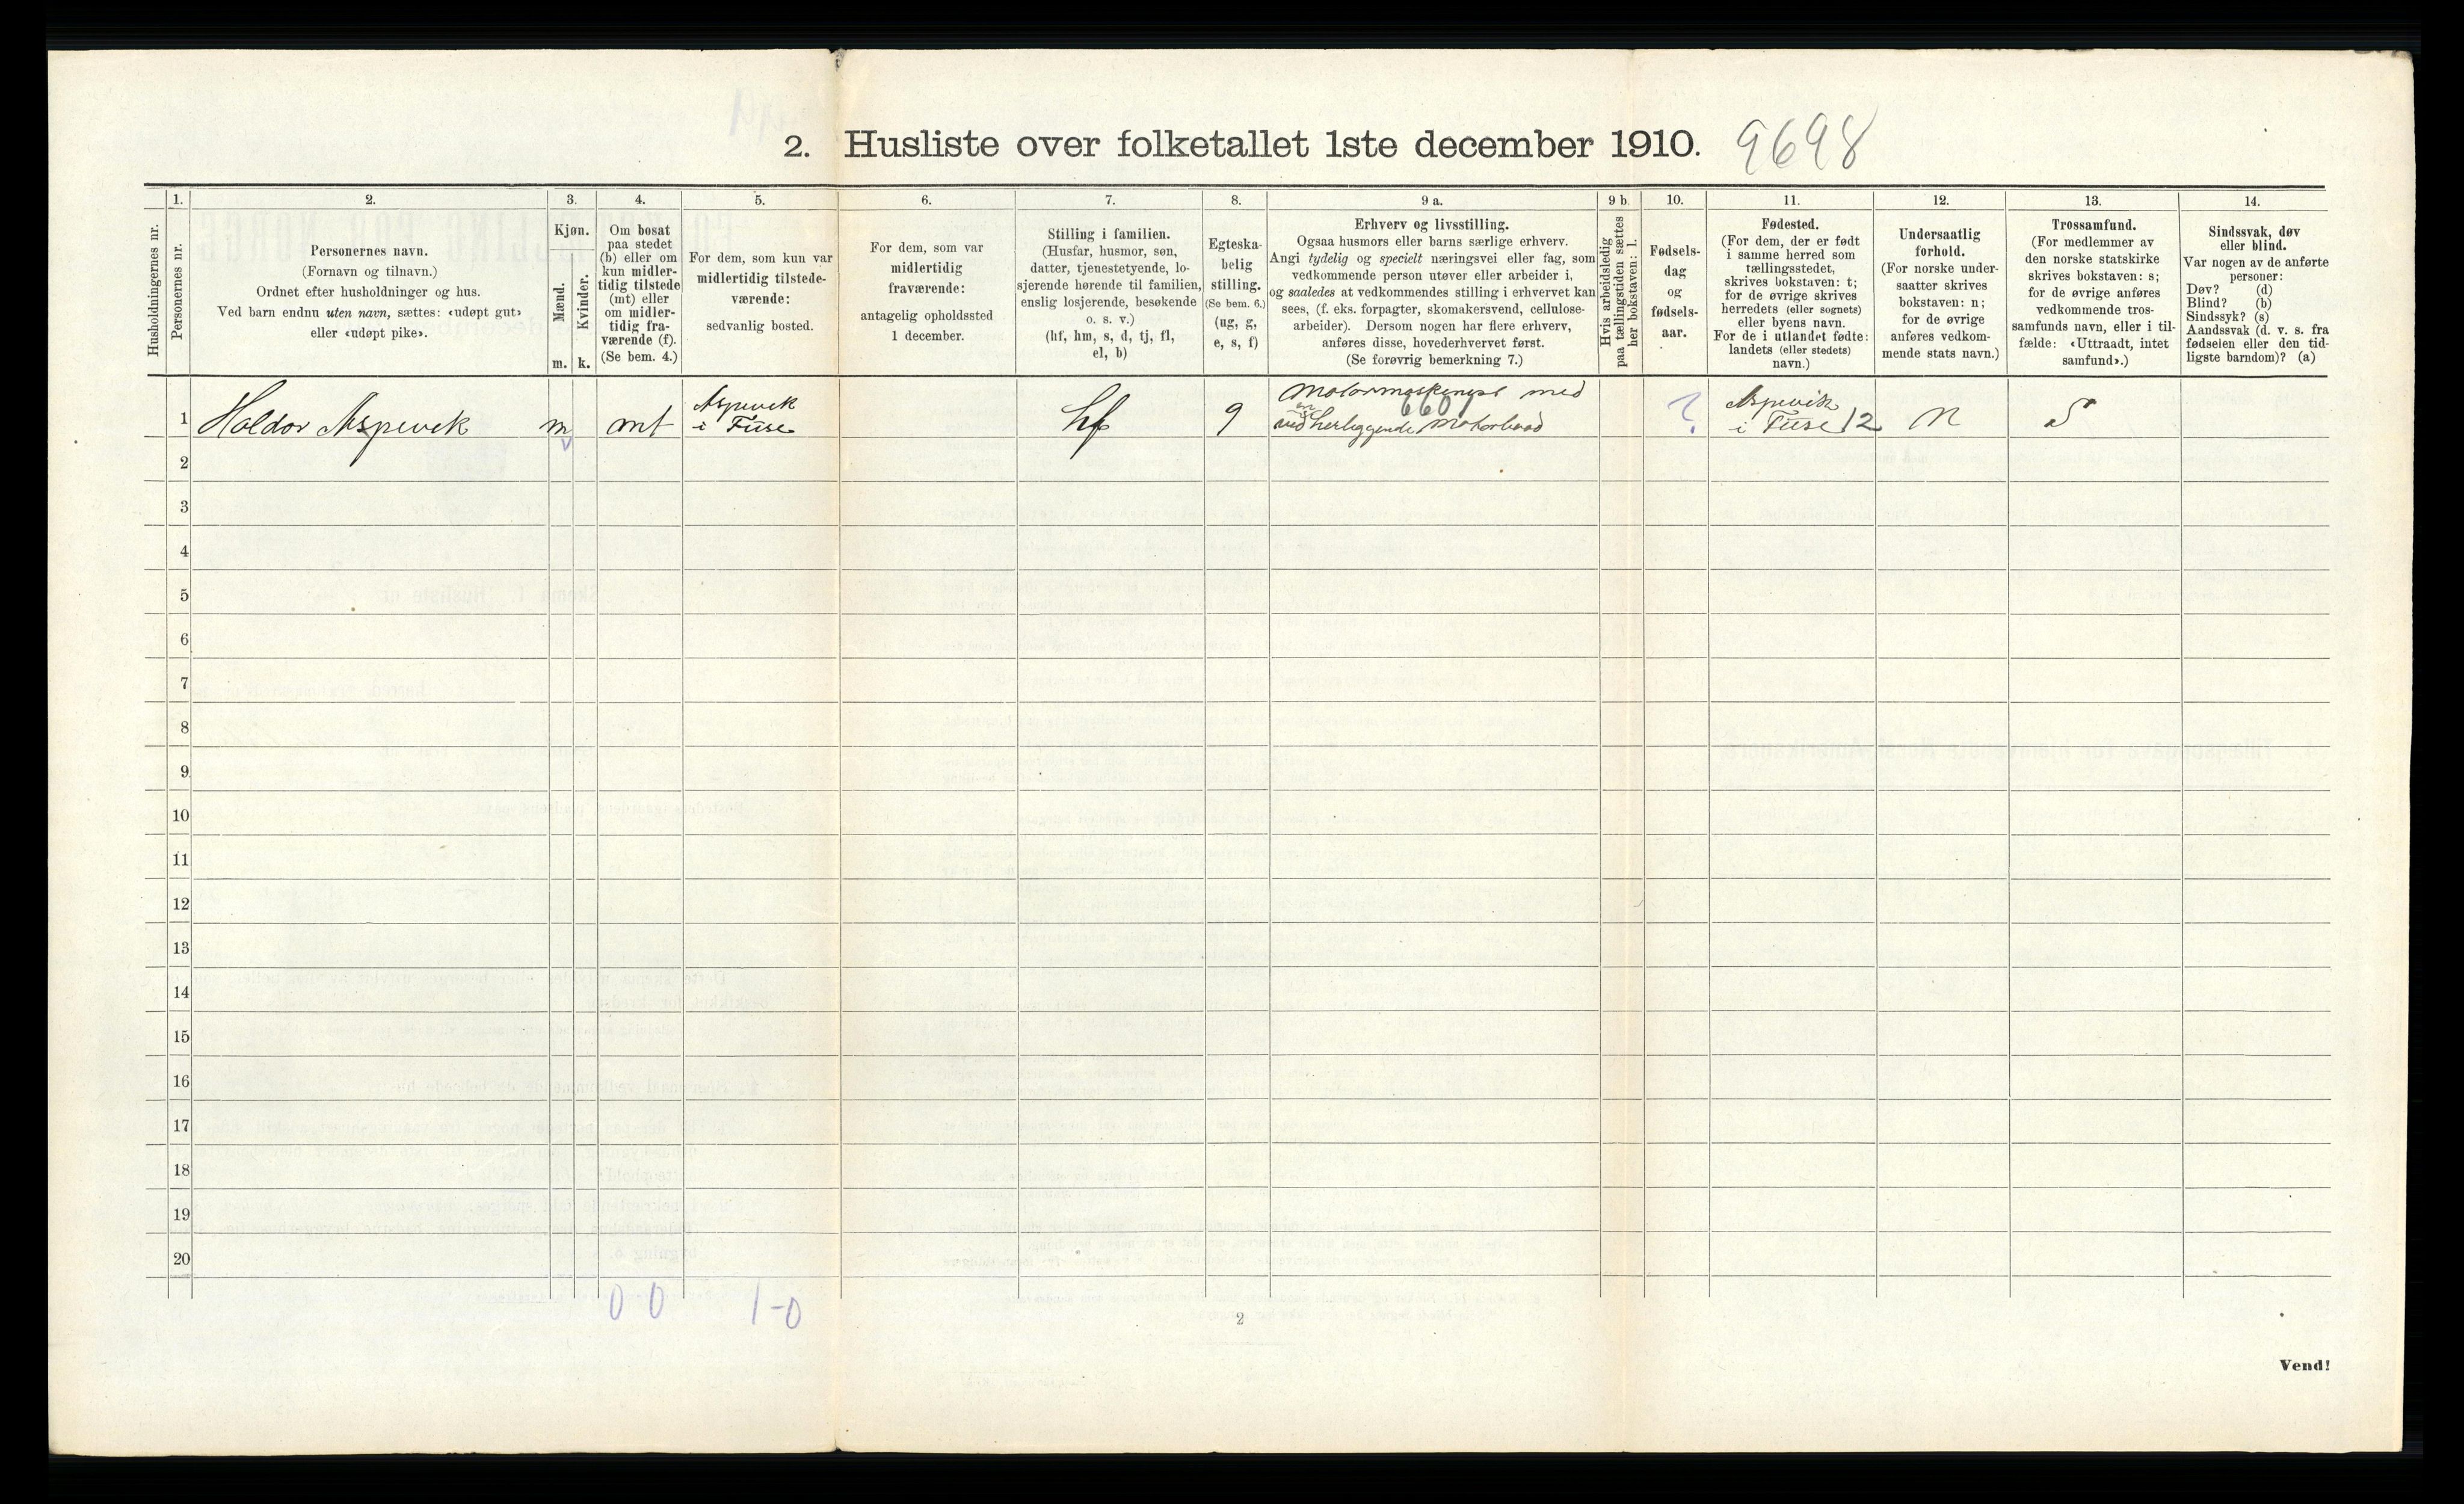 2. Husliste over folketallet 1ste december 1910. 9698
1.
2.
3.
4.
5.
6.
7.
8.
9 a.
9 b.
10.
11.
12.
13.
14.
Husholdningernes nr.
Personernes nr.
Personernes navn.
(Fornavn og tilnavn.)
Ordnet efter husholdninger og hus.
Ved barn endnu uten navn, sættes: «udøpt gut»
eller «udøpt pike».
Kjøn.
Mænd.
Kvinder.
m. k.
Om bosat
paa stedet
(b) eller om
kun midler-
tidig tilstede
(mt) eller
om midler-
tidig fra-
værende (f).
(Se bem. 4.)
For dem, som kun var
midlertidig tilstede-
værende:
sedvanlig bosted.
For dem, som var
midlertidig
fraværende:
antagelig opholdssted
1 december.
Stilling i familien.
(Husfar, husmor, søn,
datter, tjenestetyende, lo-
sjerende hørende til familien,
enslig losjerende, besøkende
o. s. v.)
(hf, hm, s, d, tj, fl,
el, b)
Egteska-
belig
stilling.
(Se bem. 6.)
(ug, g,
e, s, f)
Erhverv og livsstilling.
Ogsaa husmors eller barns særlige erhverv.
Angi tydelig og specielt næringsvei eller fag, som
vedkommende person utøver eller arbeider i,
og saaledes at vedkommendes stilling i erhvervet kan
sees, (f. eks. forpagter, skomakersvend, cellulose-
arbeider). Dersom nogen har flere erhverv,
anføres disse, hovederhvervet først.
(Se forøvrig bemerkning 7.)
Hvis arbeidsledig
paa tællingstiden sættes
her bokstaven: l.
Fødsels-
dag
og
fødsels-
aar.
Fødested.
(For dem, der er født
i samme herred som
tællingsstedet,
skrives bokstaven: t;
for de øvrige skrives
herredets (eller sognets)
eller byens navn.
For de i utlandet fødte:
landets (eller stedets)
navn.)
Undersaatlig
forhold.
(For norske under-
saatter skrives
bokstaven: n;
for de øvrige
anføres vedkom-
mende stats navn.)
Trossamfund.
(For medlemmer av
den norske statskirke
skrives bokstaven: s;
for de øvrige anføres
vedkommende tros-
samfunds navn, eller i til-
fælde: «Uttraadt, intet
samfund».)
Sindssvak, døv
eller blind.
Var nogen av de anførte
personer:
Døv? (d)
Blind? (b)
Sindssyk? (s)
Aandssvak (d. v. s. fra
fødselen eller den tid-
ligste barndom)? (a)
1 Haldor Aspevik m mt
Aspevik
i Fuse
hf
g
Motormaskinist med
en
herliggende Motorbaad
6601
?
Aspevik
i Fuse 12
N
S
2
3
4
5
6
7
8
9
10
11
12
13
14
15
16
17
18
19
20
0 0 1-0
2
Vend!